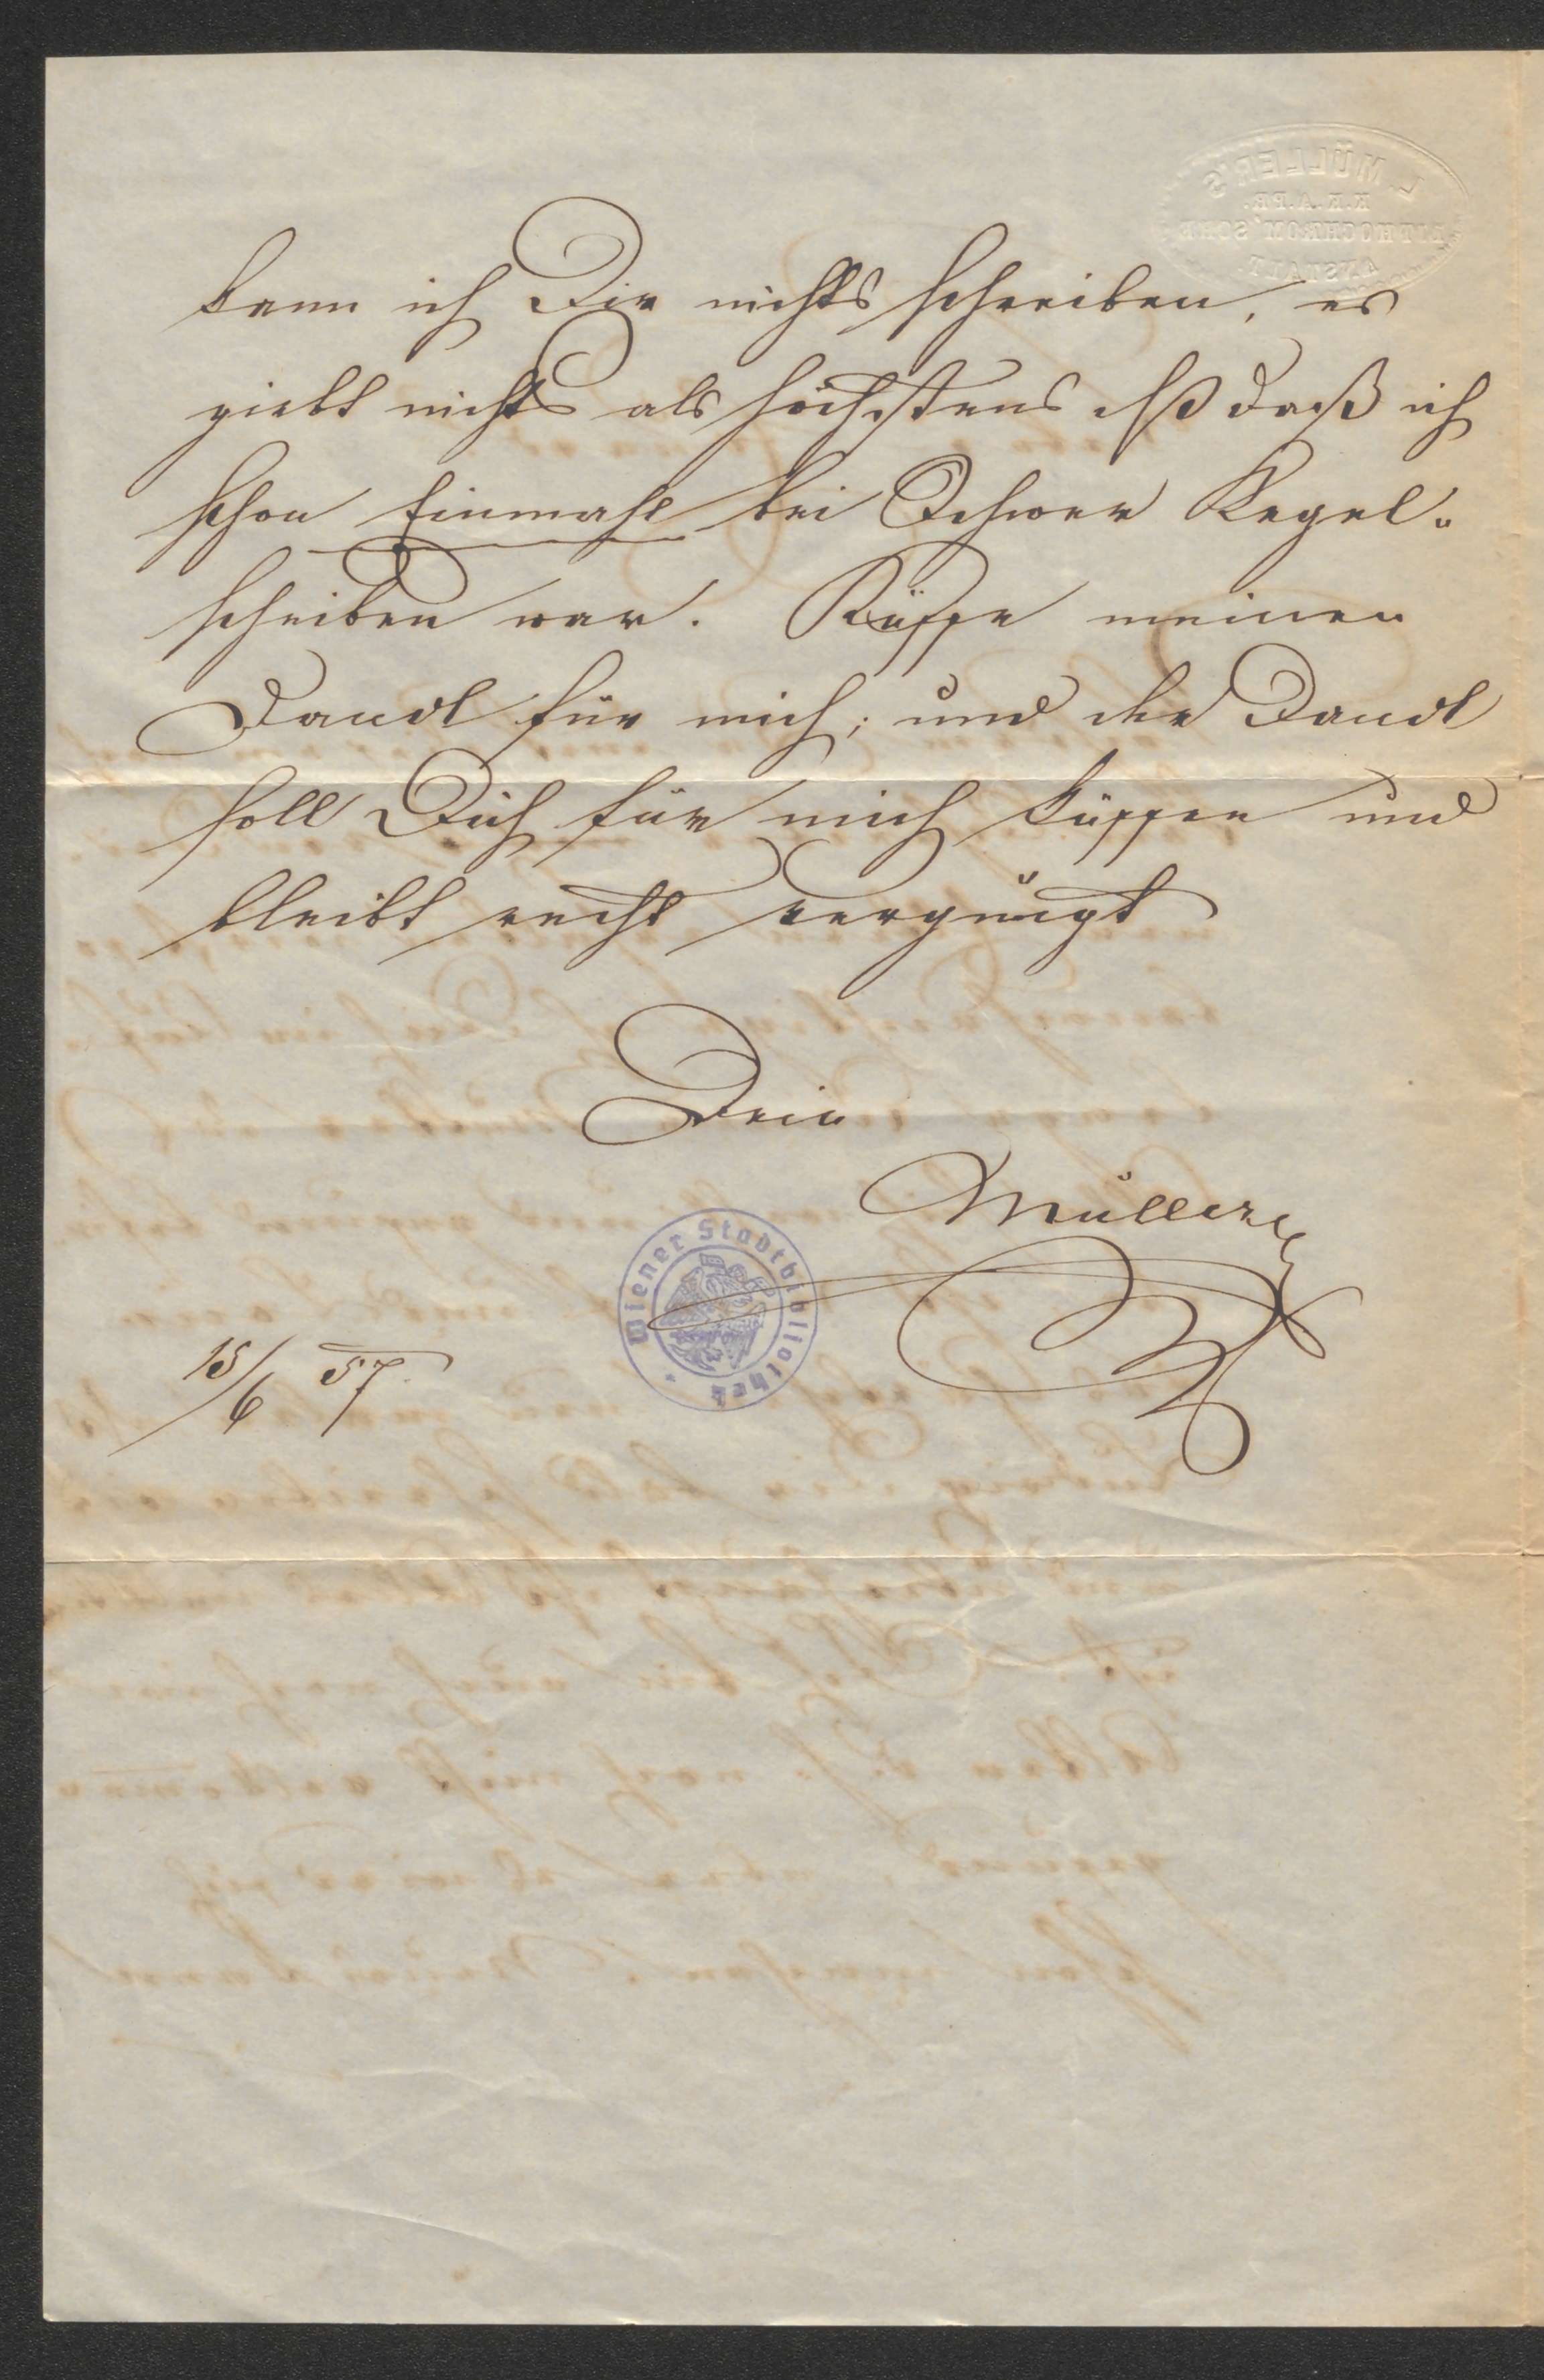 kann ich Dir nichts schreiben, es
giebt nichts als höchstens daß ich
schon Einmahl bei Kegel-
scheiben war. Küsse meinen
Dandl für mich; und der Dandl
soll Dich für mich küssen und
bleibt recht vergnügt
Dein
Müller
15/6 57.
Wiener Stadtbibliothek
L. MÜLLER'S
K.K.A.PR.
ANSTALT.